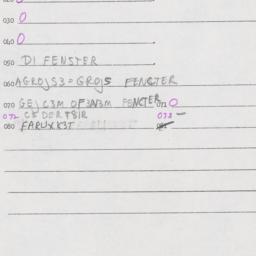 030 0
040 0
050 DI FENSTER
060 AGROJS3=GROJS FENCTER
070 GEJC3M OF3N3M FENCTER 071 0
072 073 —
080 FARUKK3T